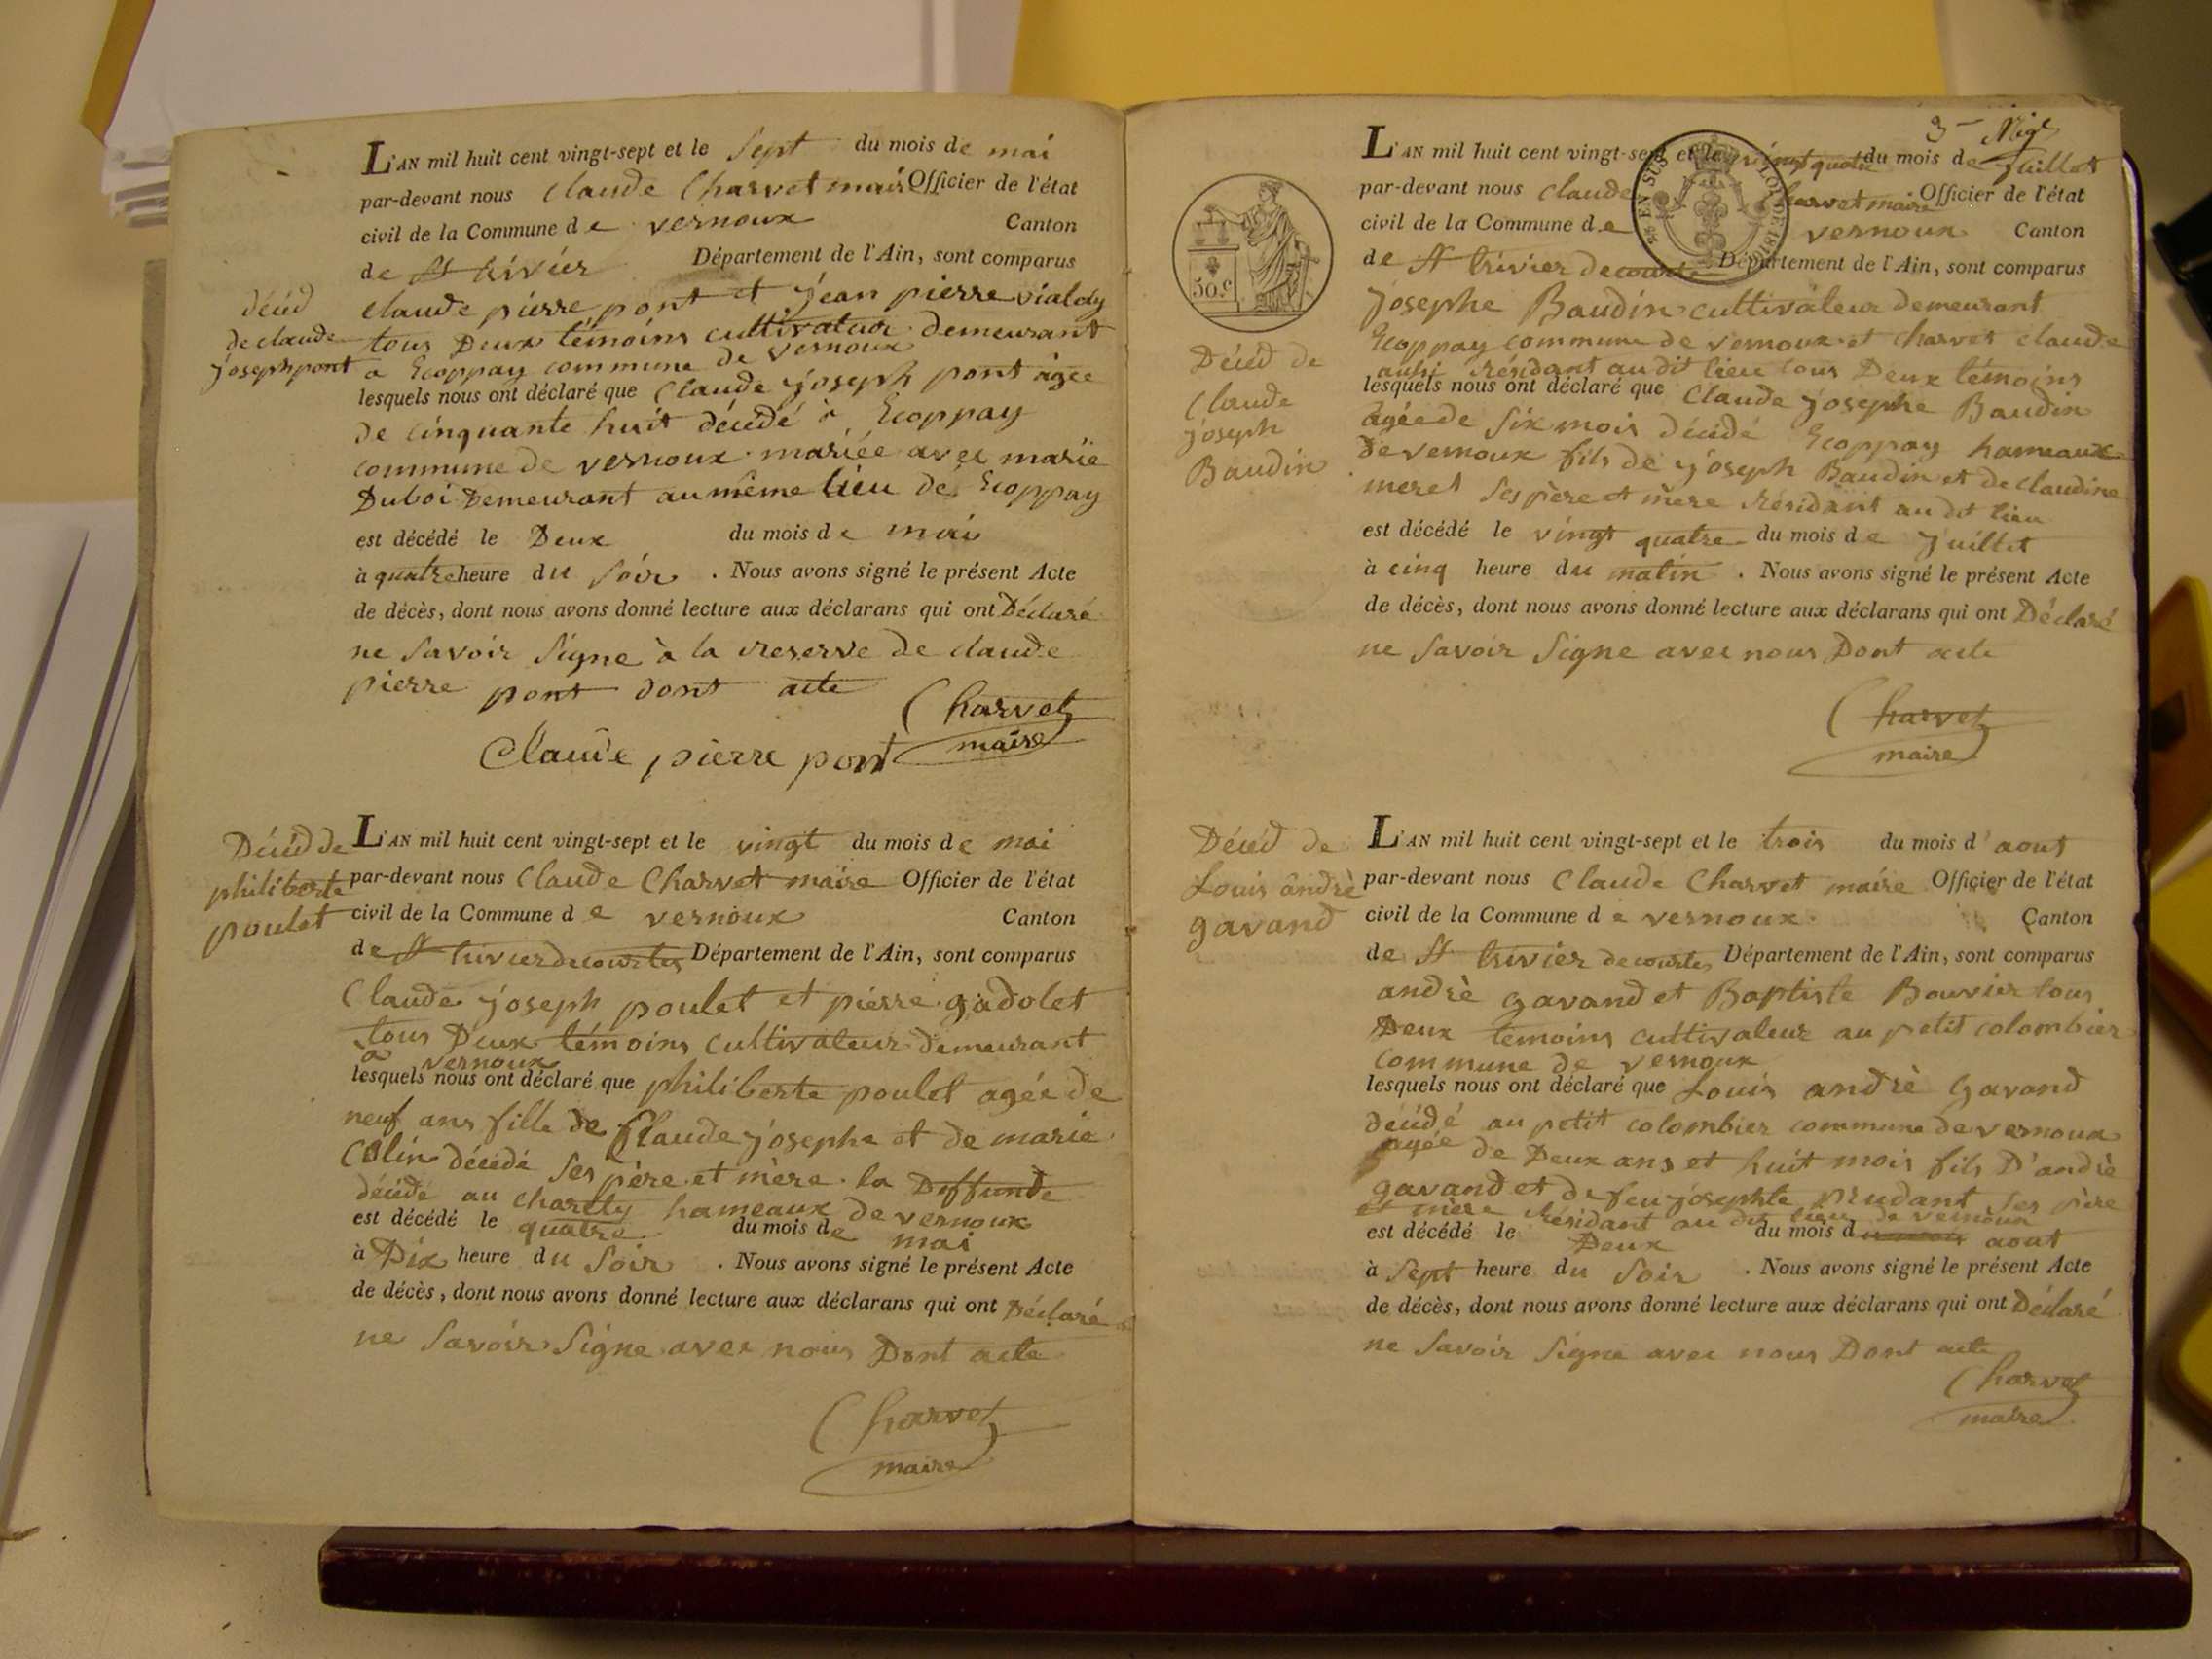 L'AN mil huit cent vingt-sept et le Sept du mois de mai
par-devant nous Claude Charvet maire Officier de l'état
civil de la Commune de vernoux Canton
de St trivier Département de l'Ain, sont comparus
décéd
de claude
joseph pont
claude pierre pont et jean pierre vialdy
tous Deux témoins cultivateur demeurant
a Ecoppay commune de vernoux
lesquels nous ont déclaré que Claude joseph pont âgée
de cinquante huit décédé à Ecoppay
commune de vernoux mariée avec marie
Duboi Demeurant au même lieu de Ecoppay
est décédé le Deux du mois de mai
à quatre heure du soir . Nous avons signé le présent Acte
de décès, dont nous avons donné lecture aux déclarans qui ont Déclaré
ne Savoir Signe à la reserve de claude
pierre pont dont acte
Charvet
maire
Claude pierre pont
Décéd de
philiberte
poulet
L'AN mil huit cent vingt-sept et le vingt du mois de mai
par-devant nous Claude Charvet maire Officier de l'état
civil de la Commune de vernoux Canton
de St trivier de courtes Département de l'Ain, sont comparus
Claude joseph poulet et pierre gadolet
tous Deux témoins cultivateur demeurant
a vernoux
lesquels nous ont déclaré que philiberte poulet agée de
neuf ans fille de Claude josephe et de marie
Colin décédé Ses père et mère la Deffunde
décédé au hameaux de vernoux
est décédé le quatre du mois de mai
à Dix heure du Soir . Nous avons signé le présent Acte
de décès, dont nous avons donné lecture aux déclarans qui ont Déclaré
ne Savoir Signe avec nous Dont acte
Charvet
maire
3
L'AN mil huit cent vingt-sept et le vingt quatre du mois de Juillet
par-devant nous Claude Charvet maire Officier de l'état
civil de la Commune de vernoux Canton
de St trivier de courtes Département de l'Ain, sont comparus
EN SUS LOI DE
50.c
Décéd de
Claude
joseph
Baudin
Josephe Baudin cultivateur demeurant
Ecoppay commune de vernoux et charvet claude
aussi résidant au dit lieu tous Deux témoins
lesquels nous ont déclaré que Claude josephe Baudin
agée de Six mois décédé Ecoppay hameaux
De vernoux fils de joseph Baudin et de claudine
meret Ses père et mère résidant au dit lieu
est décédé le vingt quatre du mois de Juillet
à cinq heure du matin . Nous avons signé le présent Acte
de décès, dont nous avons donné lecture aux déclarans qui ont Déclaré
ne Savoir Signe avec nous Dont acte
Charvet
maire
Décéd de
Louis andrè
gavand
L'AN mil huit cent vingt-sept et le trois du mois d'aout
par-devant nous Claude Charvet maire Officier de l'état
civil de la Commune de vernoux Canton
de St trivier de courtes Département de l'Ain, sont comparus
andrè gavand et Baptiste Bouvier tous
Deux temoins cultivateur au petit colombier
commune de vernoux
lesquels nous ont déclaré que Louis andrè Gavand
décédé au petit colombier commune de vernoux
agée de Deux ans et huit mois fils D'andrè
gavand et de feu josephte prudant Ses père
et mère résidant au dit lieu de vernoux
est décédé le Deux du mois d aout
à Sept heure du Soir . Nous avons signé le présent Acte
de décès, dont nous avons donné lecture aux déclarans qui ont Déclaré
ne Savoir Signe avec nous Dont acte
Charvet
maire